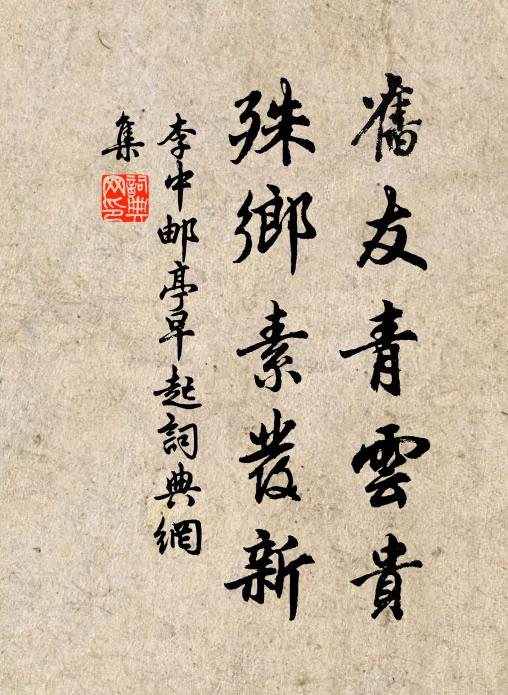 舊友青雲貴
殊鄉素發新
李中邮亭早起詞典網
集
詞典
网印